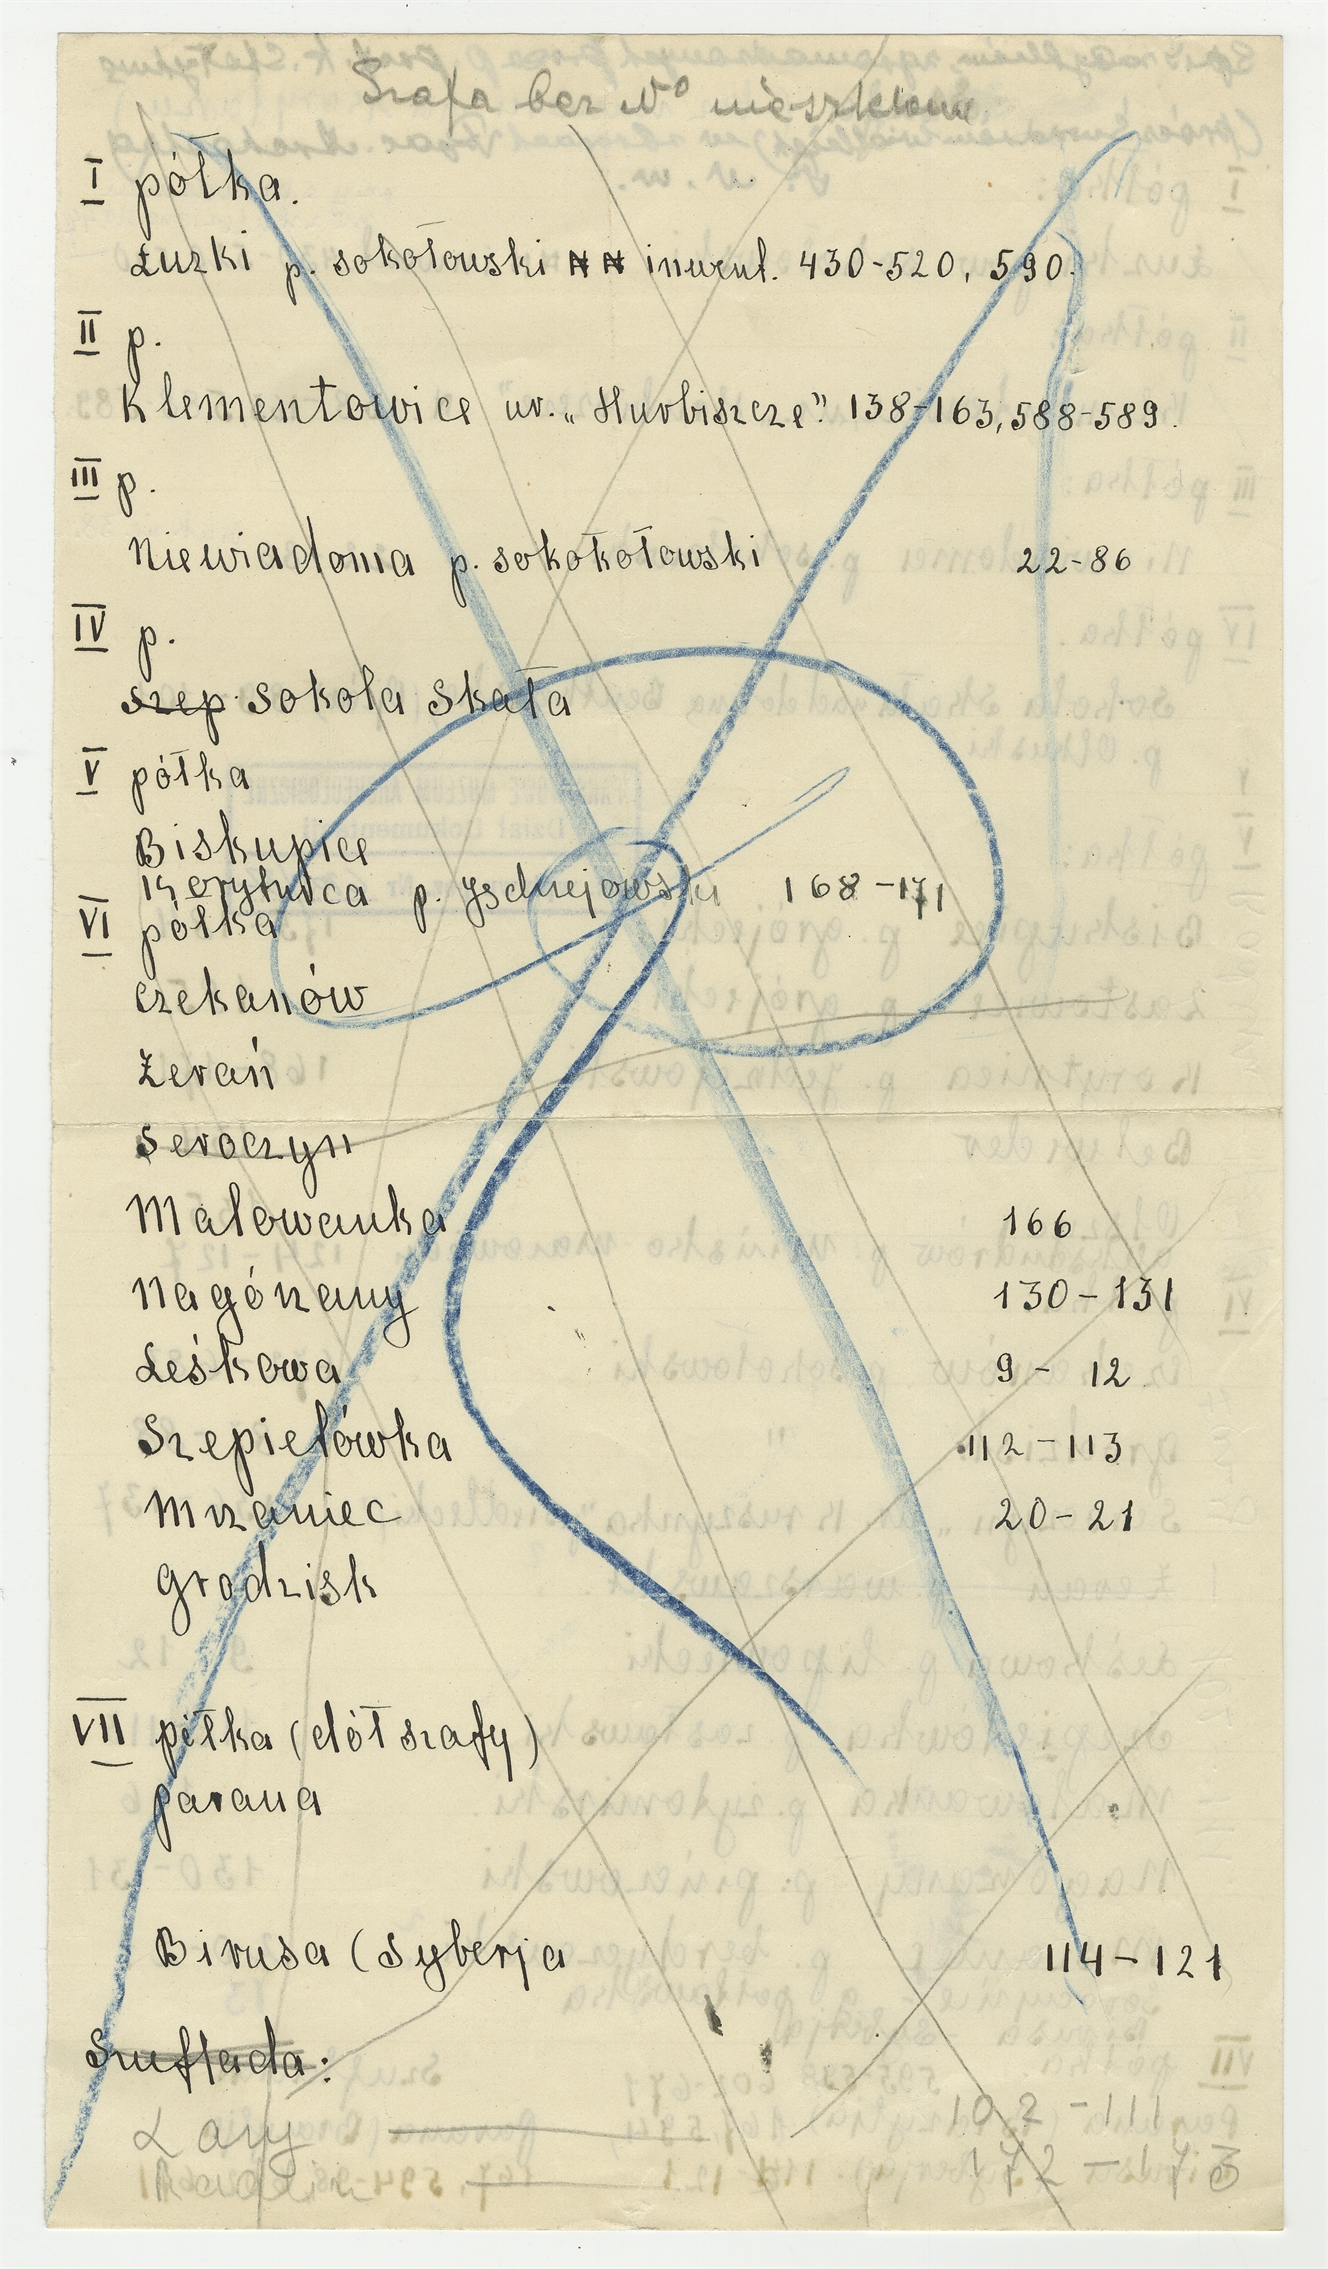 Szafa bez No nieszklona
I półka.
Łuzki p. sokołowski N N inwent. 430-520, 590.
II p.
Klementowice ur. „Hurbiszcze". 138-163, 588-589.
III p.
Niewiadoma p. sokokołowski 22-86
IV p.
szep sokola Skała
V półka
Biskupice
Korytnica p. Jędrzejowski 168-171
VI półka
Czekanów
Żerań
Seroczyn
Malowanka 166
Nagórzany 130-131
Leśkowa 9 - 12
Szepielówka 112-113
Mrzaniec 20-21
Grodzisk
VII półka (dół szafy)
parana
Birusa (Syberja 114-121
Szuflada:
Łany 102-111
172-173